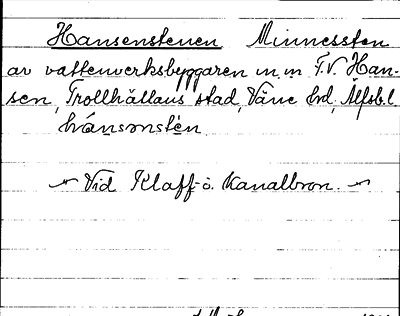 Hansenstenen Minnessten
av vattenverksbyggaren m m F.V. Han-
sen, Trollhättans stad, Väne hd, Älfsb.l.
hánsənstèn
Vid Klaff- o. Kanalbron.